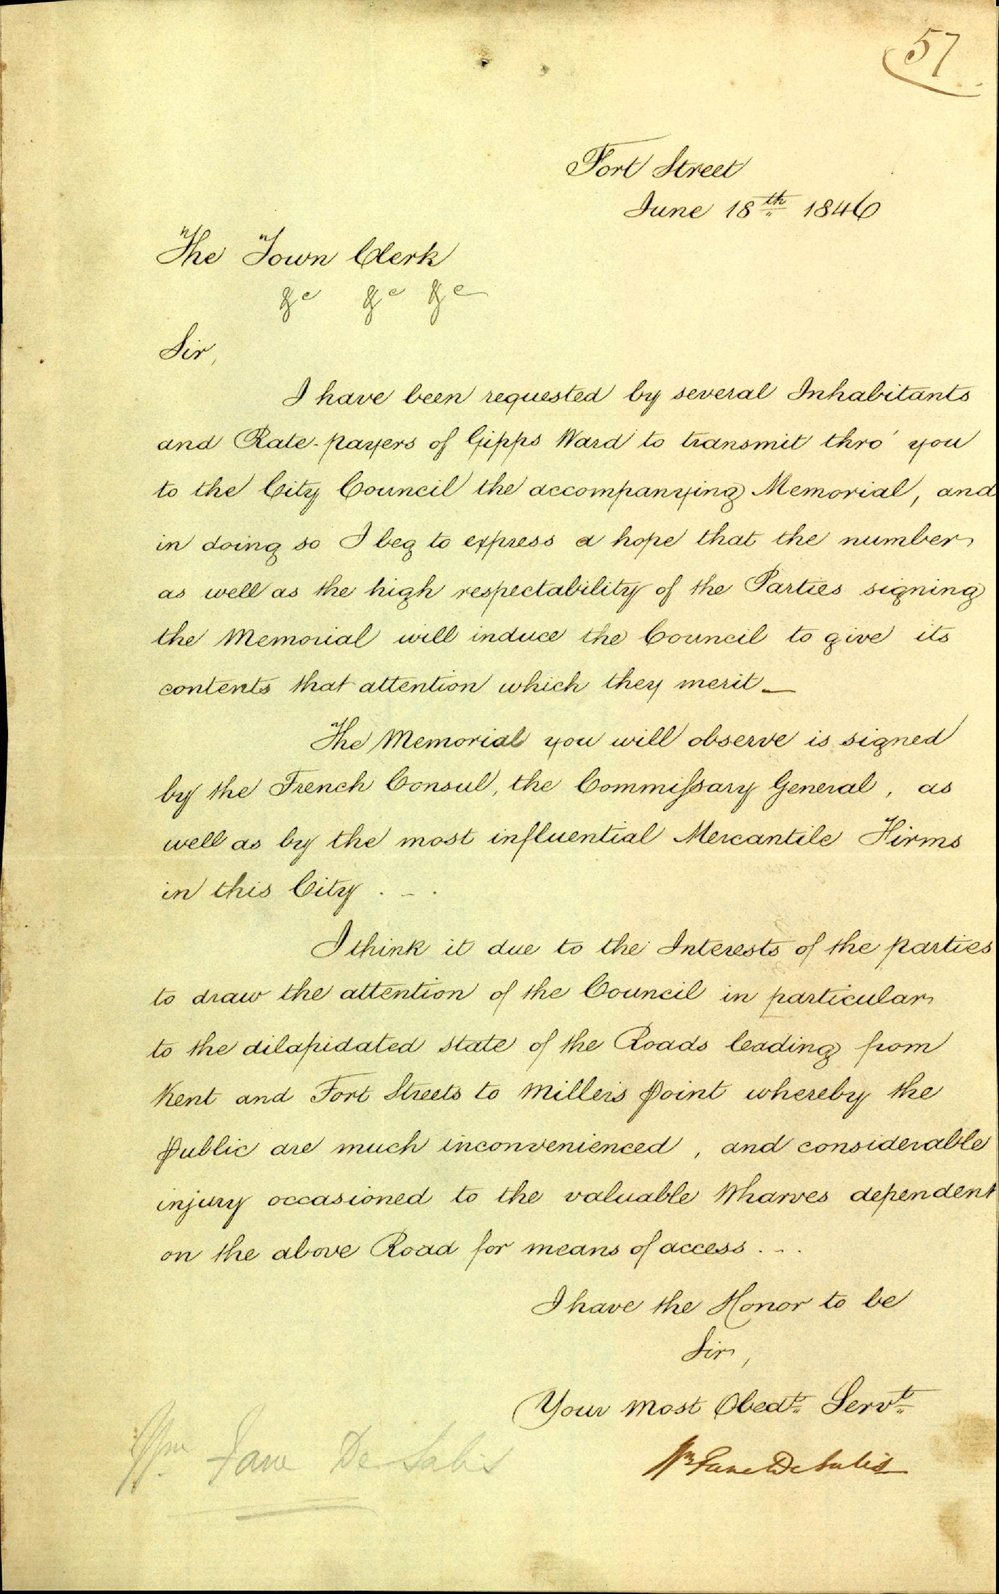 57
Fort Street
June 18th 1846
The Town Clerk
&c &c &c
Sir,
I have been requested by several Inhabitants
and Rate-payers of Gipps Ward to transmit thro' you
to the City Council the accompanying Memorial, and
in doing so I beg to express a hope that the number
as well as the high respectability of the Parties signing
the Memorial will induce the Council to give its
contents that attention which they merit_
The Memorial you will observe is signed
by the French Consul, the Commissary General, as
well as by the most influential Mercantile Firms
in this City . - .
I think it due to the Interests of the parties
to draw the attention of the Council in particular
to the dilapidated state of the Roads leading from
Kent and Fort Streets to Millers Point whereby the
Public are much inconvenienced, and considerable
injury occasioned to the valuable Wharves dependent
on the above Road for means of access . - .
I have the Honor to be
Sir,
Your most Obedt. Servt.
Wm Fane De Salis
Wm Fane De Salis